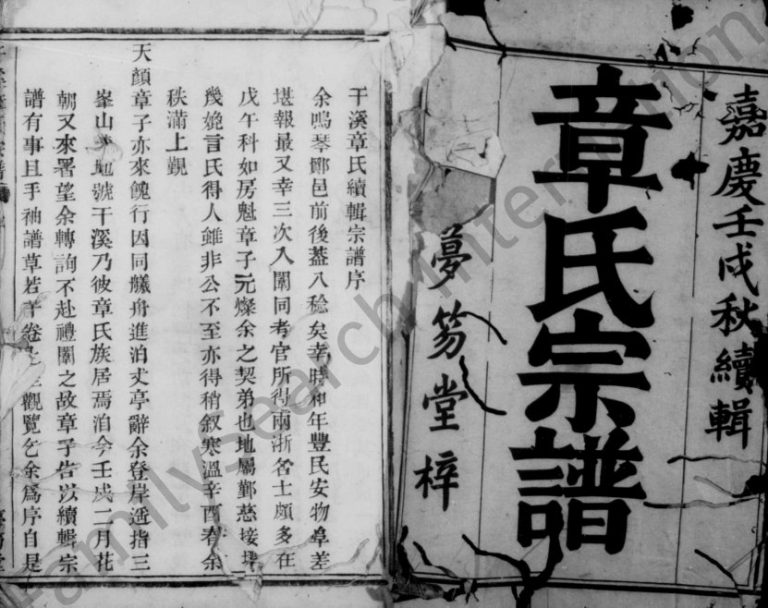 嘉慶壬戌秋續輯
章氏宗譜
夢笏堂梓
干溪章氏續輯宗譜序
余鳴琴鄞邑前後葢八稔矣幸時和年豐民安物阜差
堪報最又幸三次入闈同考官所得兩浙名士頗多在
戊午科如房魁章子元燦余之契弟也地屬鄞慈接
幾娩言氏得人雖非公不至亦得稍敘寒溫辛酉春余
秩滿上覲
天顏章子亦來餽行因同艤舟進泊丈亭辭余登岸遥指三
峯山 號干溪乃彼章氏族居焉泊今壬戌二月花
朝又來署望余轉詢不赴禮闈之故章子告以續輯宗
譜有事且手袖譜草若干卷 觀覽乞余為序自是
FamilySearch International